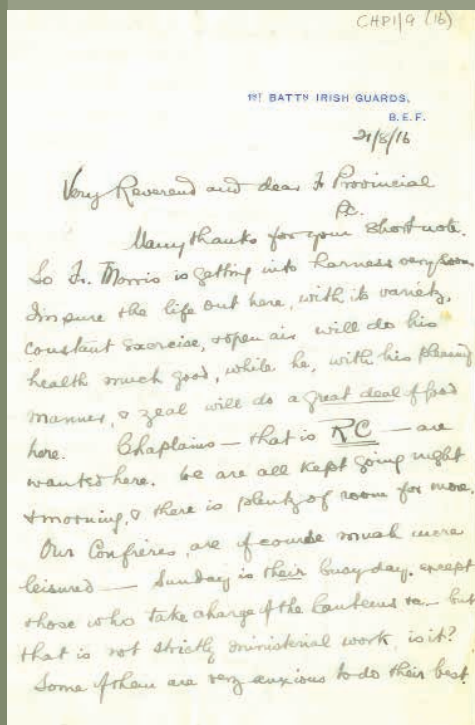 CHP1/9 (16)
1ST BATTN IRISH GUARDS,
B.E.F.
21/8/16
Very Reverend and dear Fr Provincial
P.C.
Many thanks for your short note.
So Fr. Morris is getting into harness very soon.
I'm sure the life out here, with its variety,
constant exercise, & open air will do his
health much good, while he, with his pleasing
manner, & zeal will do a great deal of good
here. Chaplains — that is RC — are
wanted here. We are all kept going night
& morning, & there is plenty of room for more.
Our Confrères, are of course much more
leisured — Sunday is their busy day. except
those who take charge of the Canteens &c — but
that is not strictly ministerial work, is it?
Some of them are very anxious to do their best